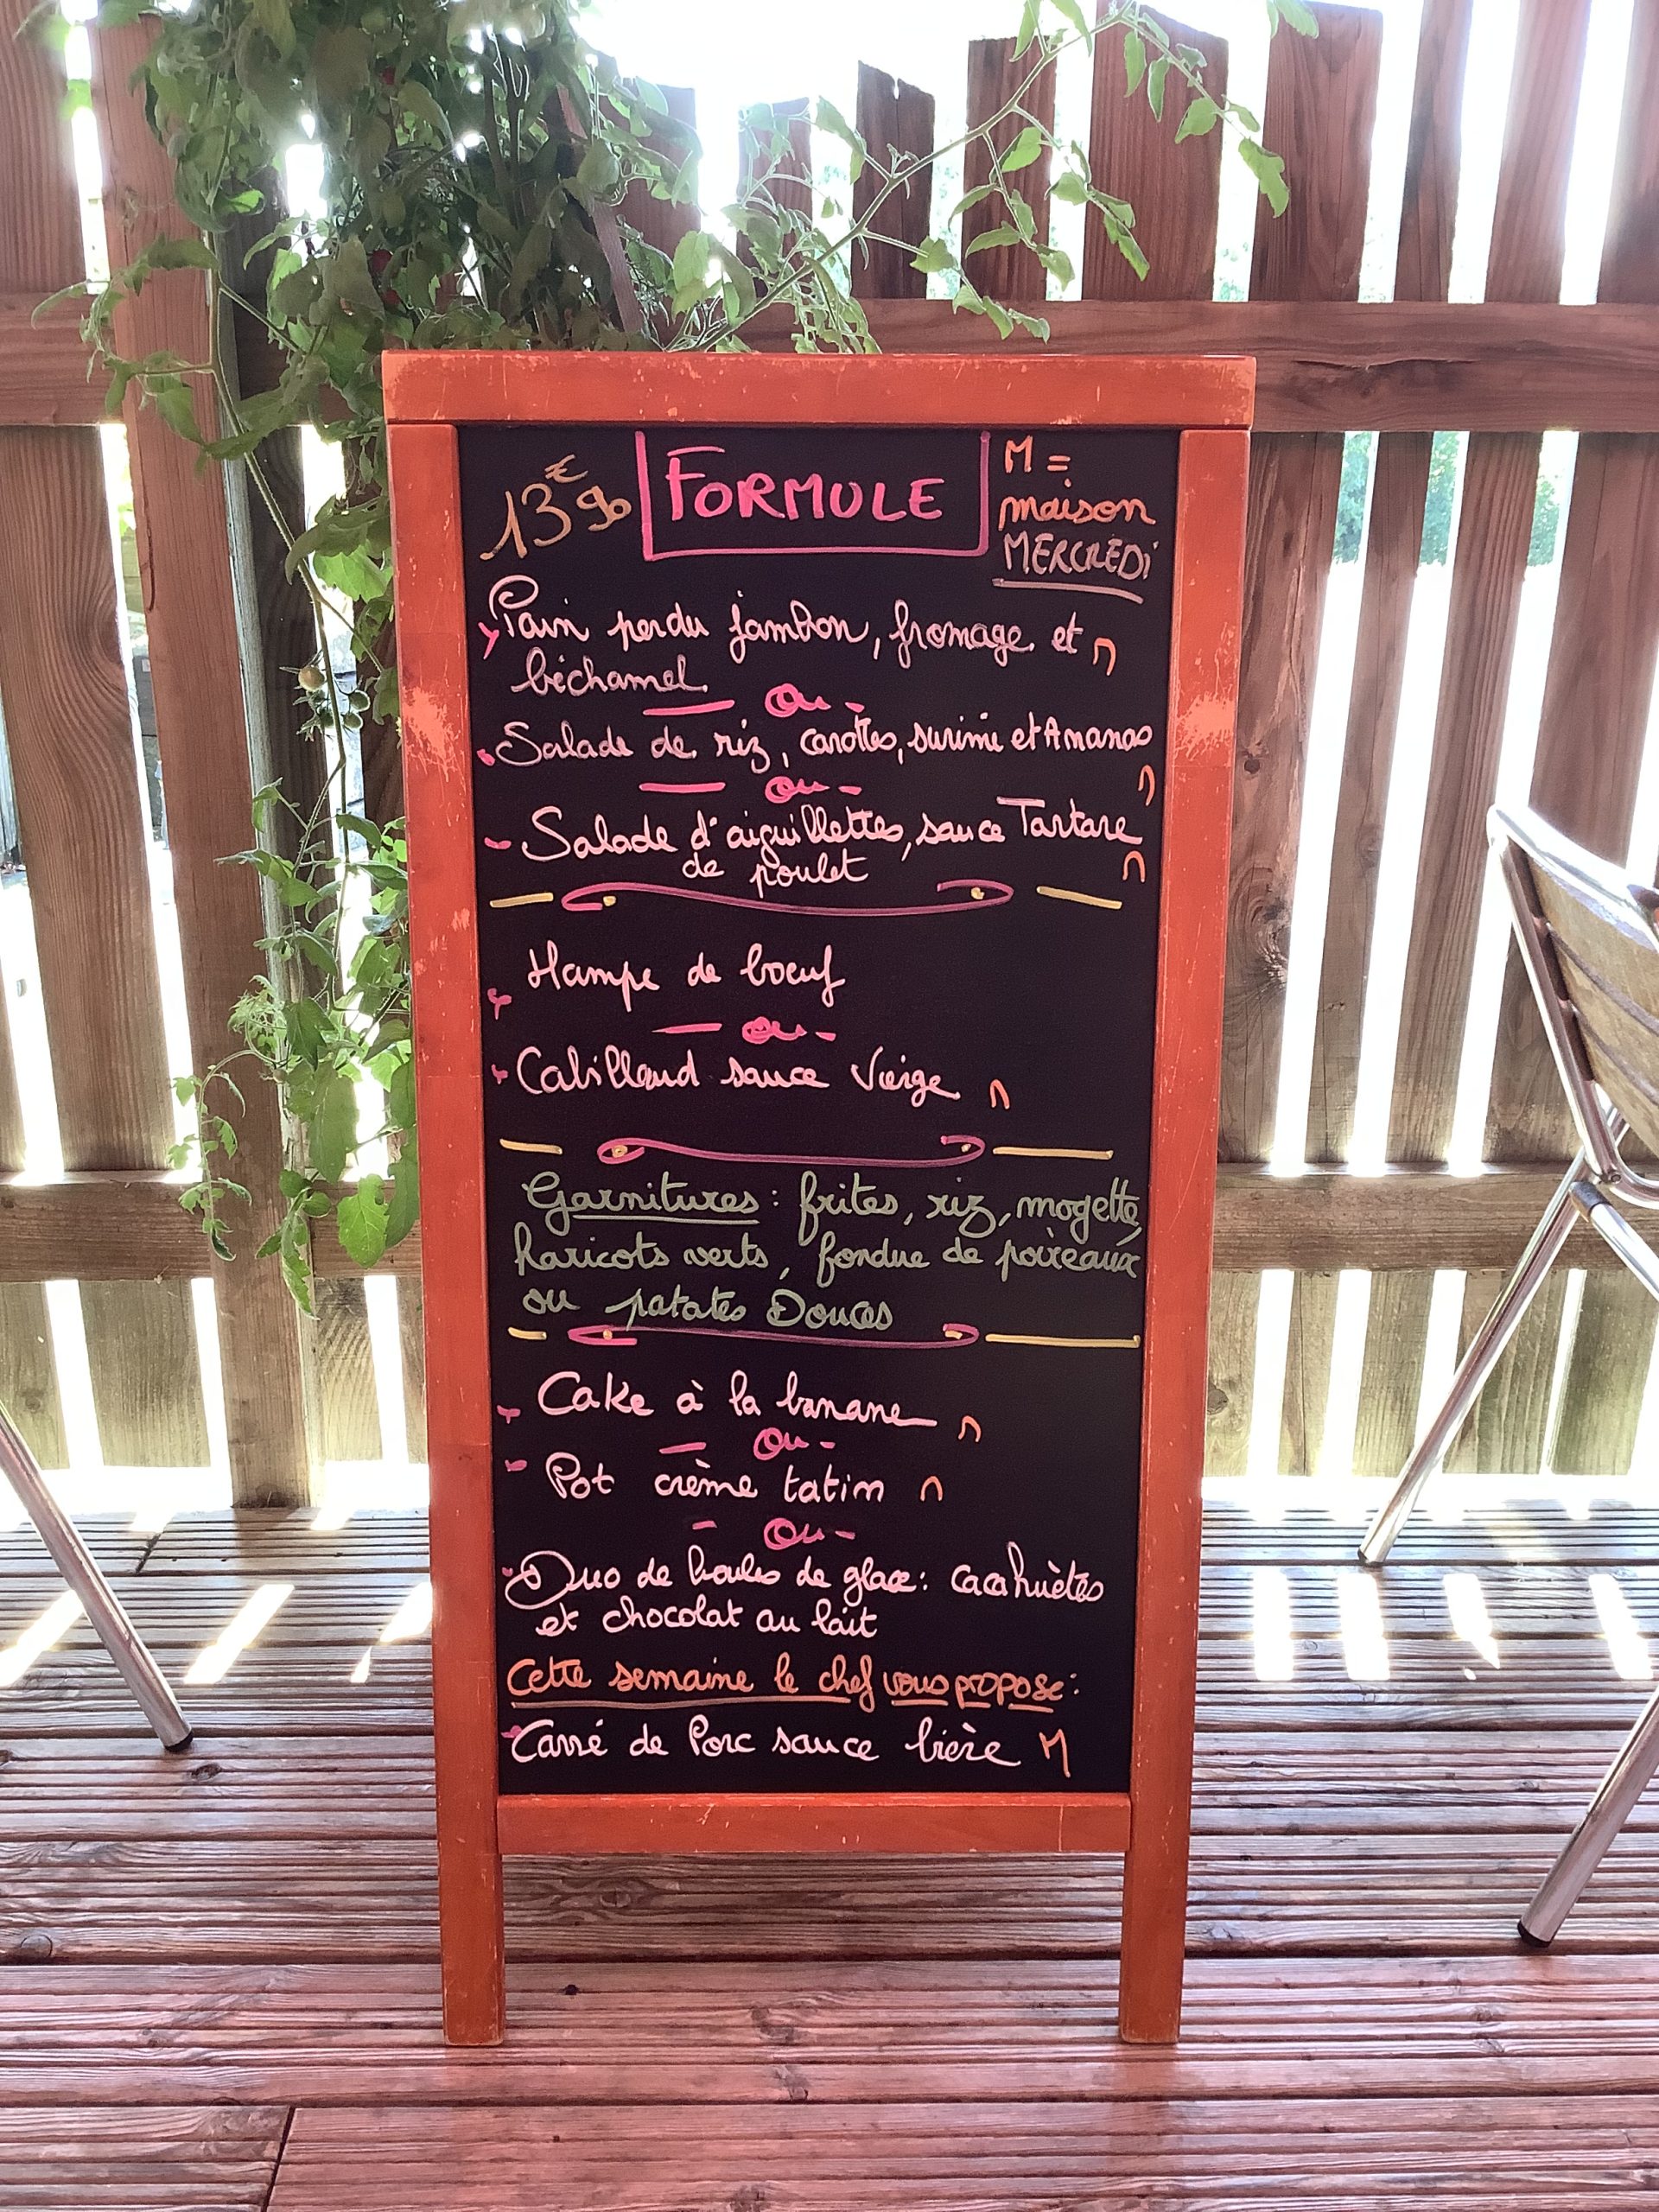 13€90 FORMULE M =
maison
MERCREDI
Pain perdu jambon, fromage et M
béchamel
— ou -
Salade de riz, carottes, surimi et Ananas
M
— ou -
Salade d'aiguillettes, sauce Tartare
de poulet M
Hampe de boeuf
— ou -
Cabillaud sauce Vierge M
Garnitures : frites, riz, mogette,
haricots verts, fondue de poireaux
ou patates Douces
Cake à la banane M
— Ou -
Pot crème tatin M
- Ou -
Duo de boules de glace : cacahuètes
et chocolat au lait
Cette semaine le chef vous propose :
Carré de Porc sauce bière M